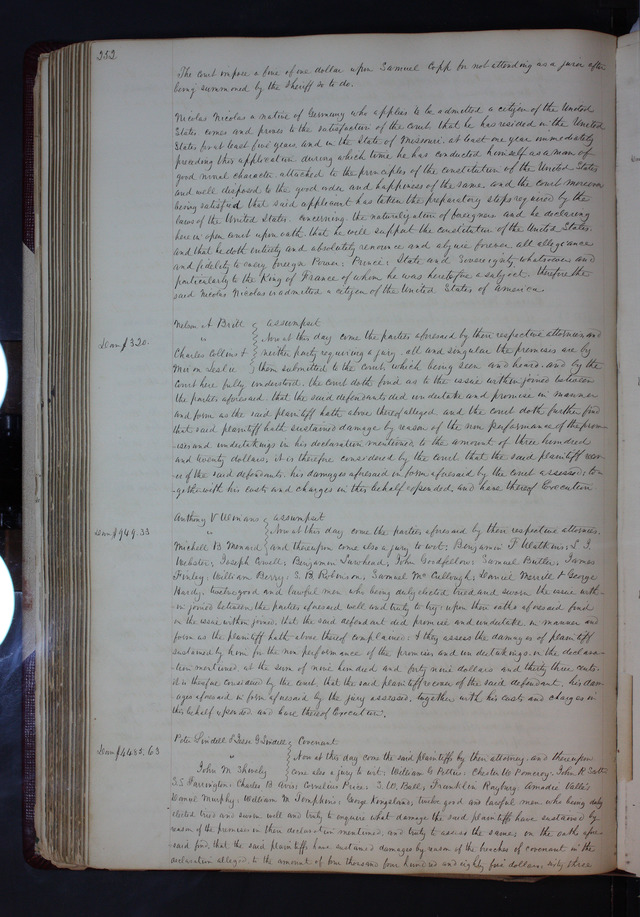 252.
The court impose a fine of one dollar upon Samuel Copp for not attending as a juror after
being summoned by the Sheriff so to do.
Nicolas Nicolas a native of Germany who applies to be admitted a citizen of the United
States comes and proves to the satisfaction of the court that he has resided in the United
States for at least five years and in the State of Missouri, at least one year immediately
preceding this application during which time he has conducted himself as a man of
good moral character attached to the principles of the constitution of the United States
and well disposed to the good order and happiness of the same and the court moreover
being satisfied that said applicant has taken the preparatory steps required by the
laws of the United States concerning the naturalization of foreigners and he declaring
here in open court upon oath, that he will support the constitution of the United States
and that he doth entirely and absolutely renounce and abjure forever all allegiance
and fidelity to every foreign Power, Prince, State and Sovereignty whatsoever and
particularly to the King of France of whom he was heretofore a subject. Therefore the
said Nicolas Nicolas is admitted a citizen of the United States of America.
Nelson A Britt assumpsit
" Now at this day come the parties aforesaid by their respective attornies and
Dam $320.
Charles Collins & neither party requiring a jury. all and singular the premises are by
them submitted to the court which being seen and heard and by the
court here fully understood, the court doth find as to the issue within joined between
the parties aforesaid, that the said defendants did undertake and promise in manner
and form as the said plaintiff hath above thereof alleged and the court doth further find
that said plaintiff hath sustained damage by reason of the non performance of the prom-
-ises and undertakings in his declaration mentioned to the amount of three hundred
and twenty dollars, it is therefore considered by the court that the said plaintiff recov-
-er of the said defendants, his damages aforesaid in form aforesaid by the court assessed, to-
-gether with his costs and charges in this behalf expended, and have thereof Execution
Anthony V assumpsit
" Now at this day come the parties aforesaid by their respective attornies,
Dam $949.33
Michell B Menard and thereupon come also a jury to wit: Benjamin F Watkins, L. J.
Webster, Joseph Cowell, Benjamin Lawhead, John Goodfellow, Samuel Butler, James
Finley, William Berry, S. B. Robinson, Samuel McCullough, Daniel Merritt & George
Hardy, twelve good and lawful men who being duly elected tried and sworn the issue with-
-in joined between the parties aforesaid well and truly to try, upon their oaths aforesaid find
on the issue within joined, that the said defendant did promise and undertake in manner and
form as the plaintiff hath above thereof complained, & they assess the damages of plaintiff
sustained by him for the non performance of the promises and undertakings in the declara-
-tion mentioned at the sum of nine hundred and forty nine dollars and thirty three cents.
it is therefore considered by the court, that the said plaintiff recover of the said defendant, his dam-
-ages aforesaid in form aforesaid by the jury assessed, together with his costs and charges in
this behalf expended and have thereof Execution.
Peter Lindell & Jesse G Lindell Covenant
" Now at this day come the said plaintiffs by their attorney, and thereupon
Dam $4485.63
John M. Shively come also a jury to wit: William G Pettus, Chester W Pomeroy, John R
S S Farrington, Charles B Cornelius Price, S. W. Ball, Franklin Rayburg, Amadie Valle,
Daniel Murphy, William M Tompkins, George Kingsland, twelve good and lawful men who being duly
elected tried and sworn well and truly to enquire what damage the said plaintiffs have sustained by
reason of the premises in their declaration mentioned, and truly to assess the same, on the oaths afore-
-said find that the said plaintiffs have sustained damages by reason of the breaches of covenant in the
declaration alleged, to the amount of four thousand four hundred and eighty five dollars, sixty three